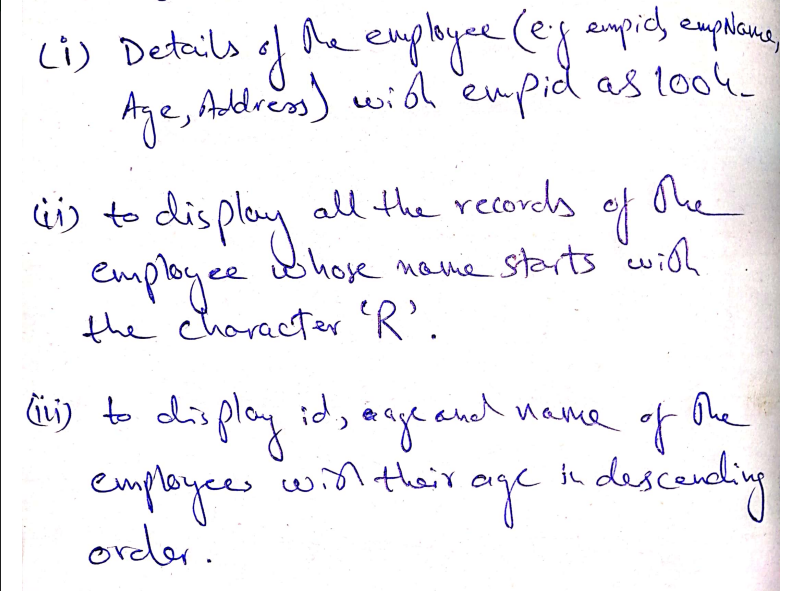 (i) Details of the employee (e.g empid, empName,
Age, Address) with empid as 1004.
(ii) to display all the records of the
employee whose name starts with
the character 'R'.
(iii) to display id, age and name of the
employees with their age in descending
order.